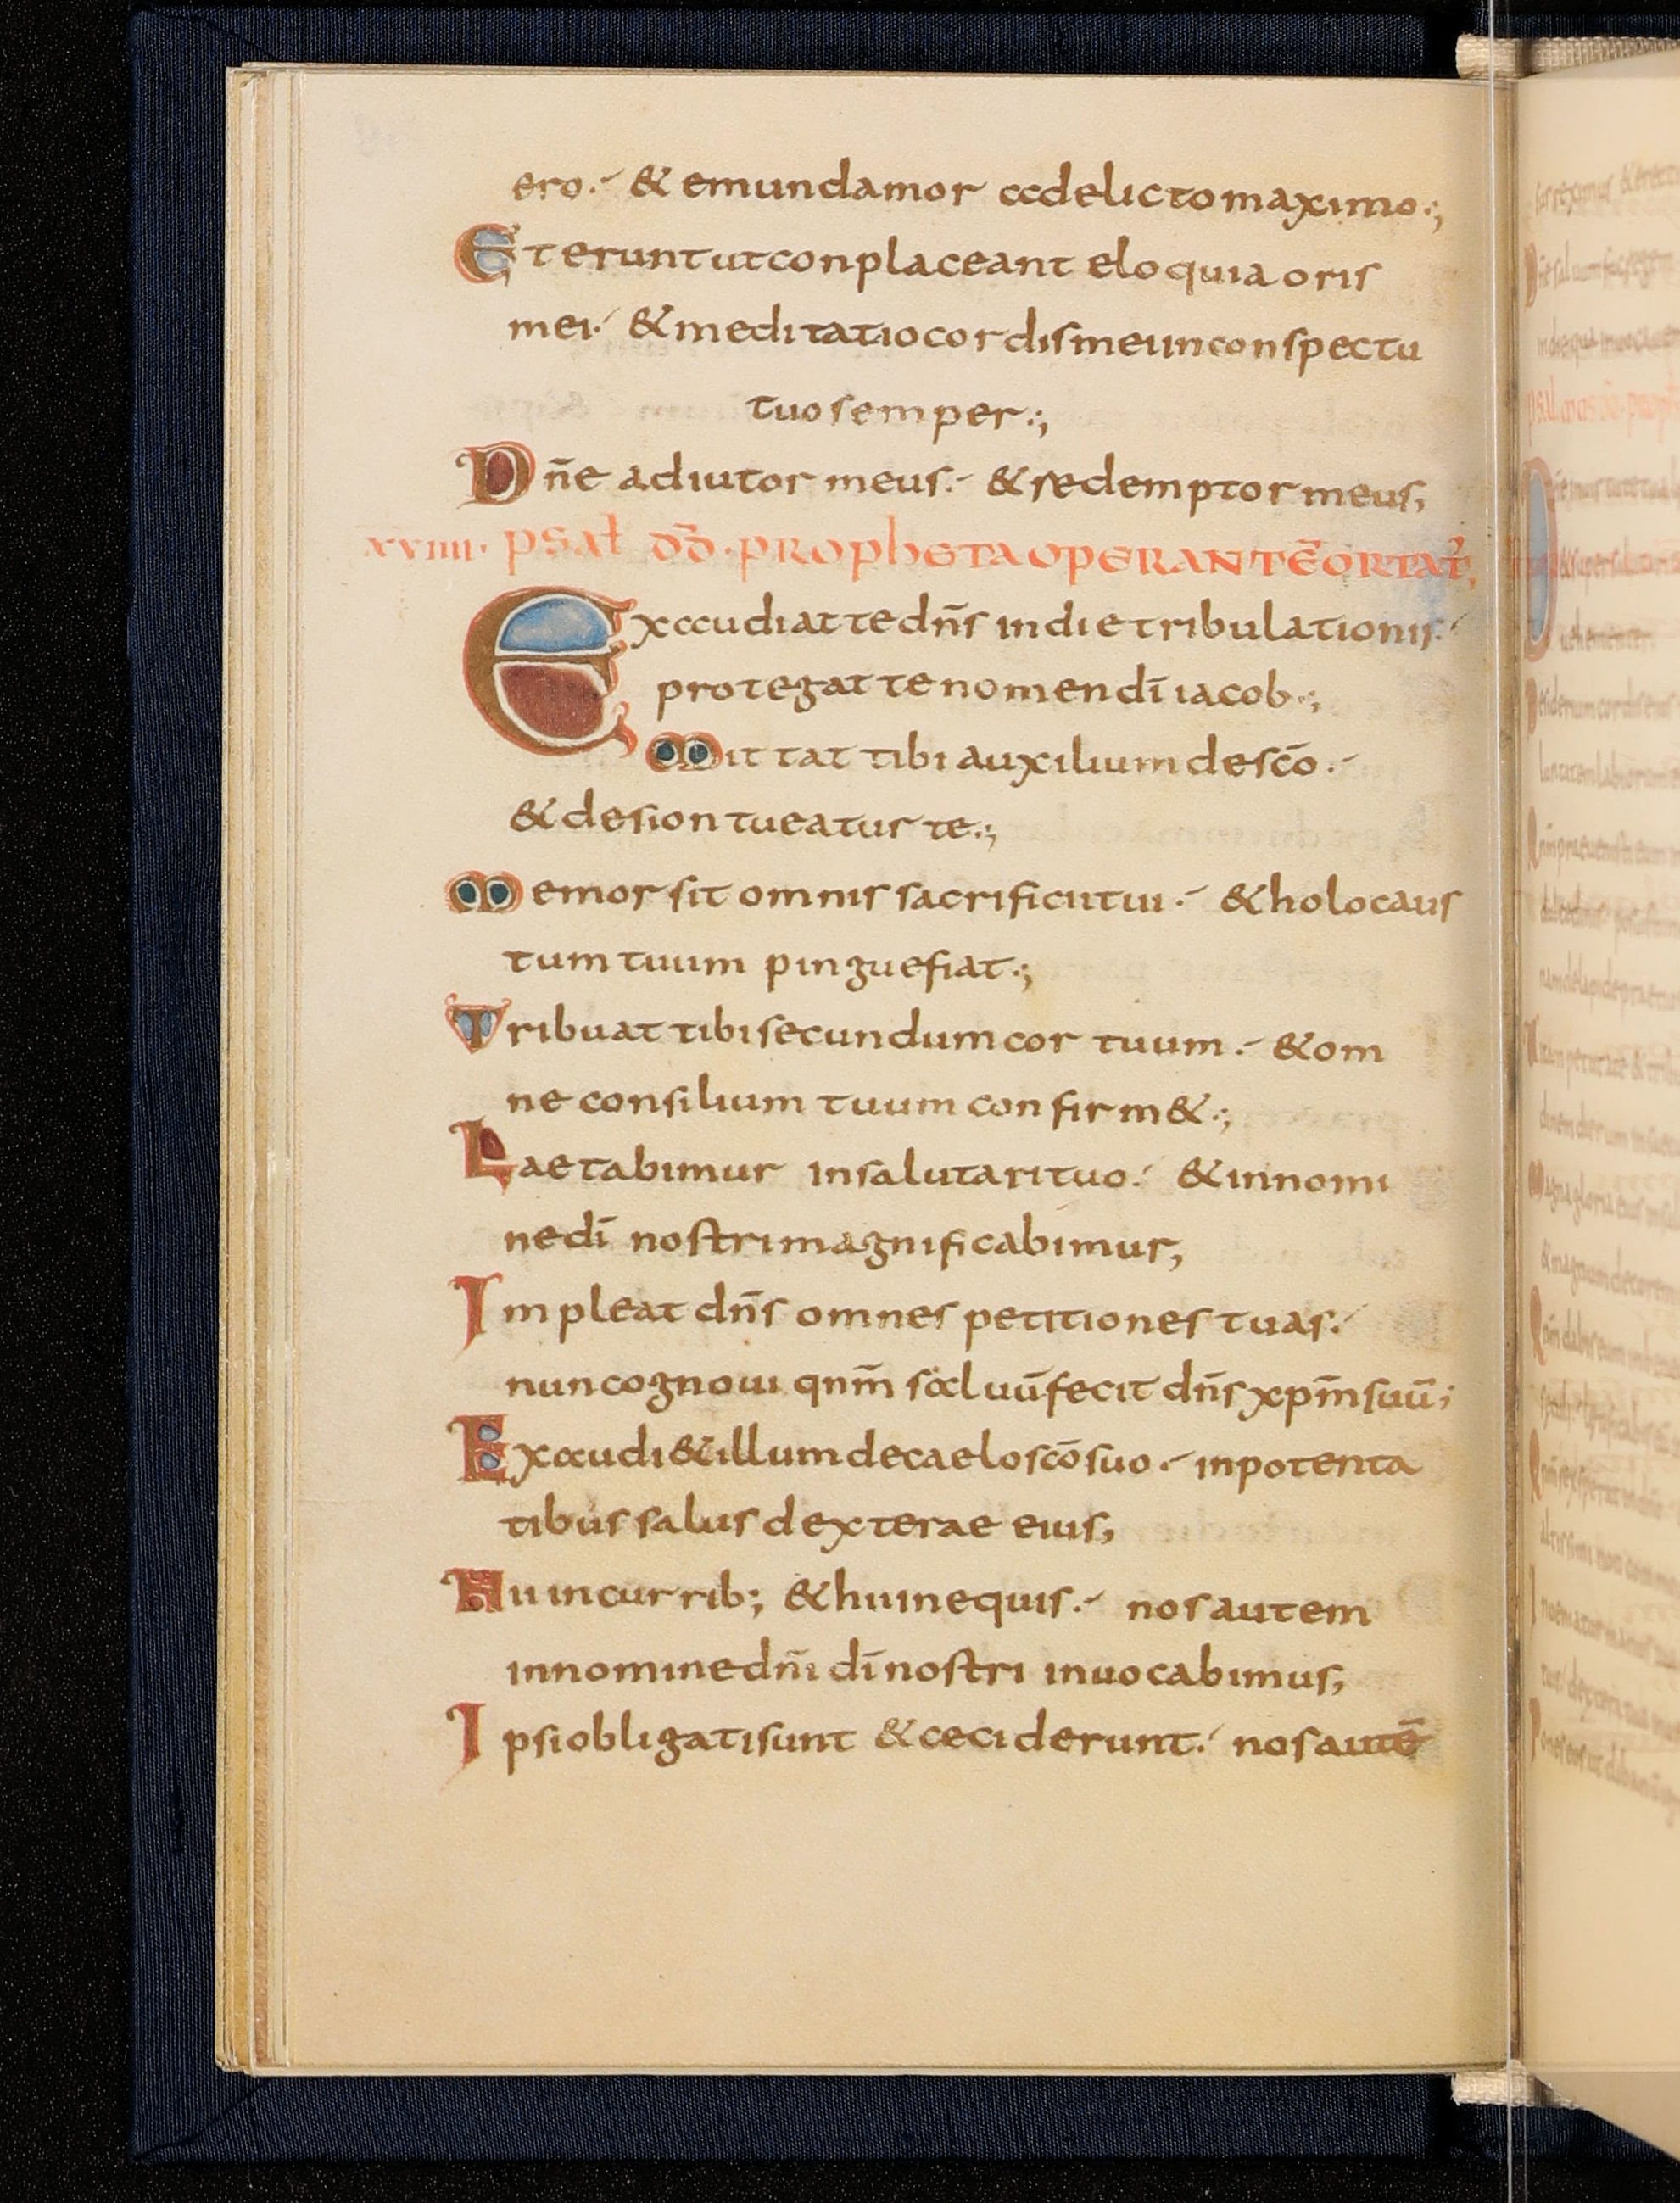 ero. & emundamor a delicto maximo.;
Et erunt ut conplaceant eloquia oris
mei. & meditatio cordis mei in conspectu
tuo semper.;
Dn̄e adiutor meus. & redemptor meus;
xviiii. psał dd̄. propheta operantē ortat̉;
Exaudiat te dn̄s in die tribulationis.
protegat te nomen dī iacob.;
Mittat tibi auxilium de scō.
& de sion tueatur te.;
Memor sit omnis sacrificii tui. & holocaus
tum tuum pingue fiat.;
Tribuat tibi secundum cor tuum. & om
ne consilium tuum confirm&.;
Laetabimur in salutari tuo. & in nomi
ne dī nostri magnificabimur;
Impleat dn̄s omnes petitiones tuas.
nun cognoui qnm̄ saluū fecit dn̄s xpm̄ suū;
Exaudi& illum de caelo scō suo. in potenta
tibus salus dexterae eius;
Hii in currib; & hii in equis. nos autem
in nomine dn̄i dī nostri inuocabimus;
Ipsi obligati sunt & ceciderunt. nos autē